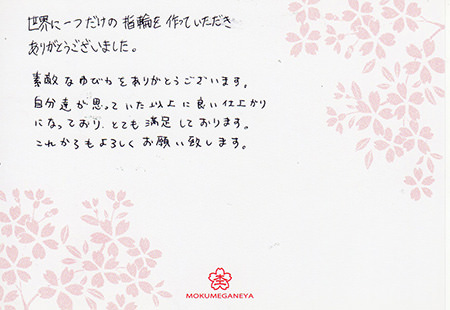 世界に一つだけの指輪を作っていただき
ありがとうございました。
素敵なゆびわをありがとうございます。
自分達が思っていた以上に良い仕上がり
になっており、とても満足しております。
これからもよろしくお願い致します。
MOKUMEGANEYA